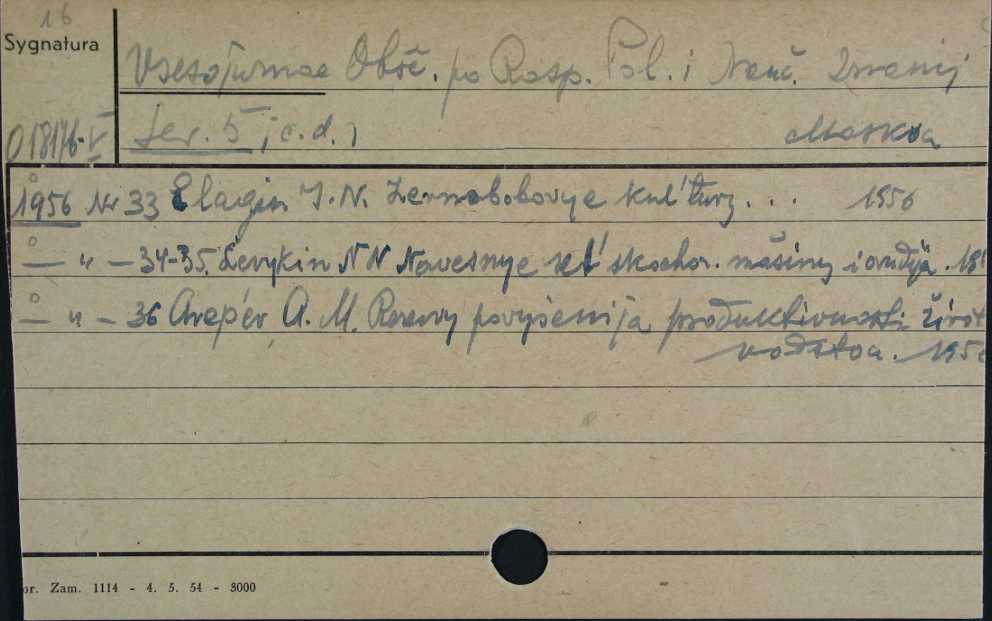 16
Sygnatura
Vsesojuznoe Obšč. po Rasp. Pol. i Nauč. Znanij
018176-V Ser. 5 ; c.d. ) Moskva
1956 Nr 33 Elagin I. N. Zernobobovye kul'tury . . . 1956
— " — 34-35. Levykin N N Navesnye s.h. mašiny i orudija.
— " — 36 Arep'ev A. M. Rezervy povyšenija produktivnosti život
vodstva. 195
or. Zam. 1114 - 4. 5. 54 - 3000